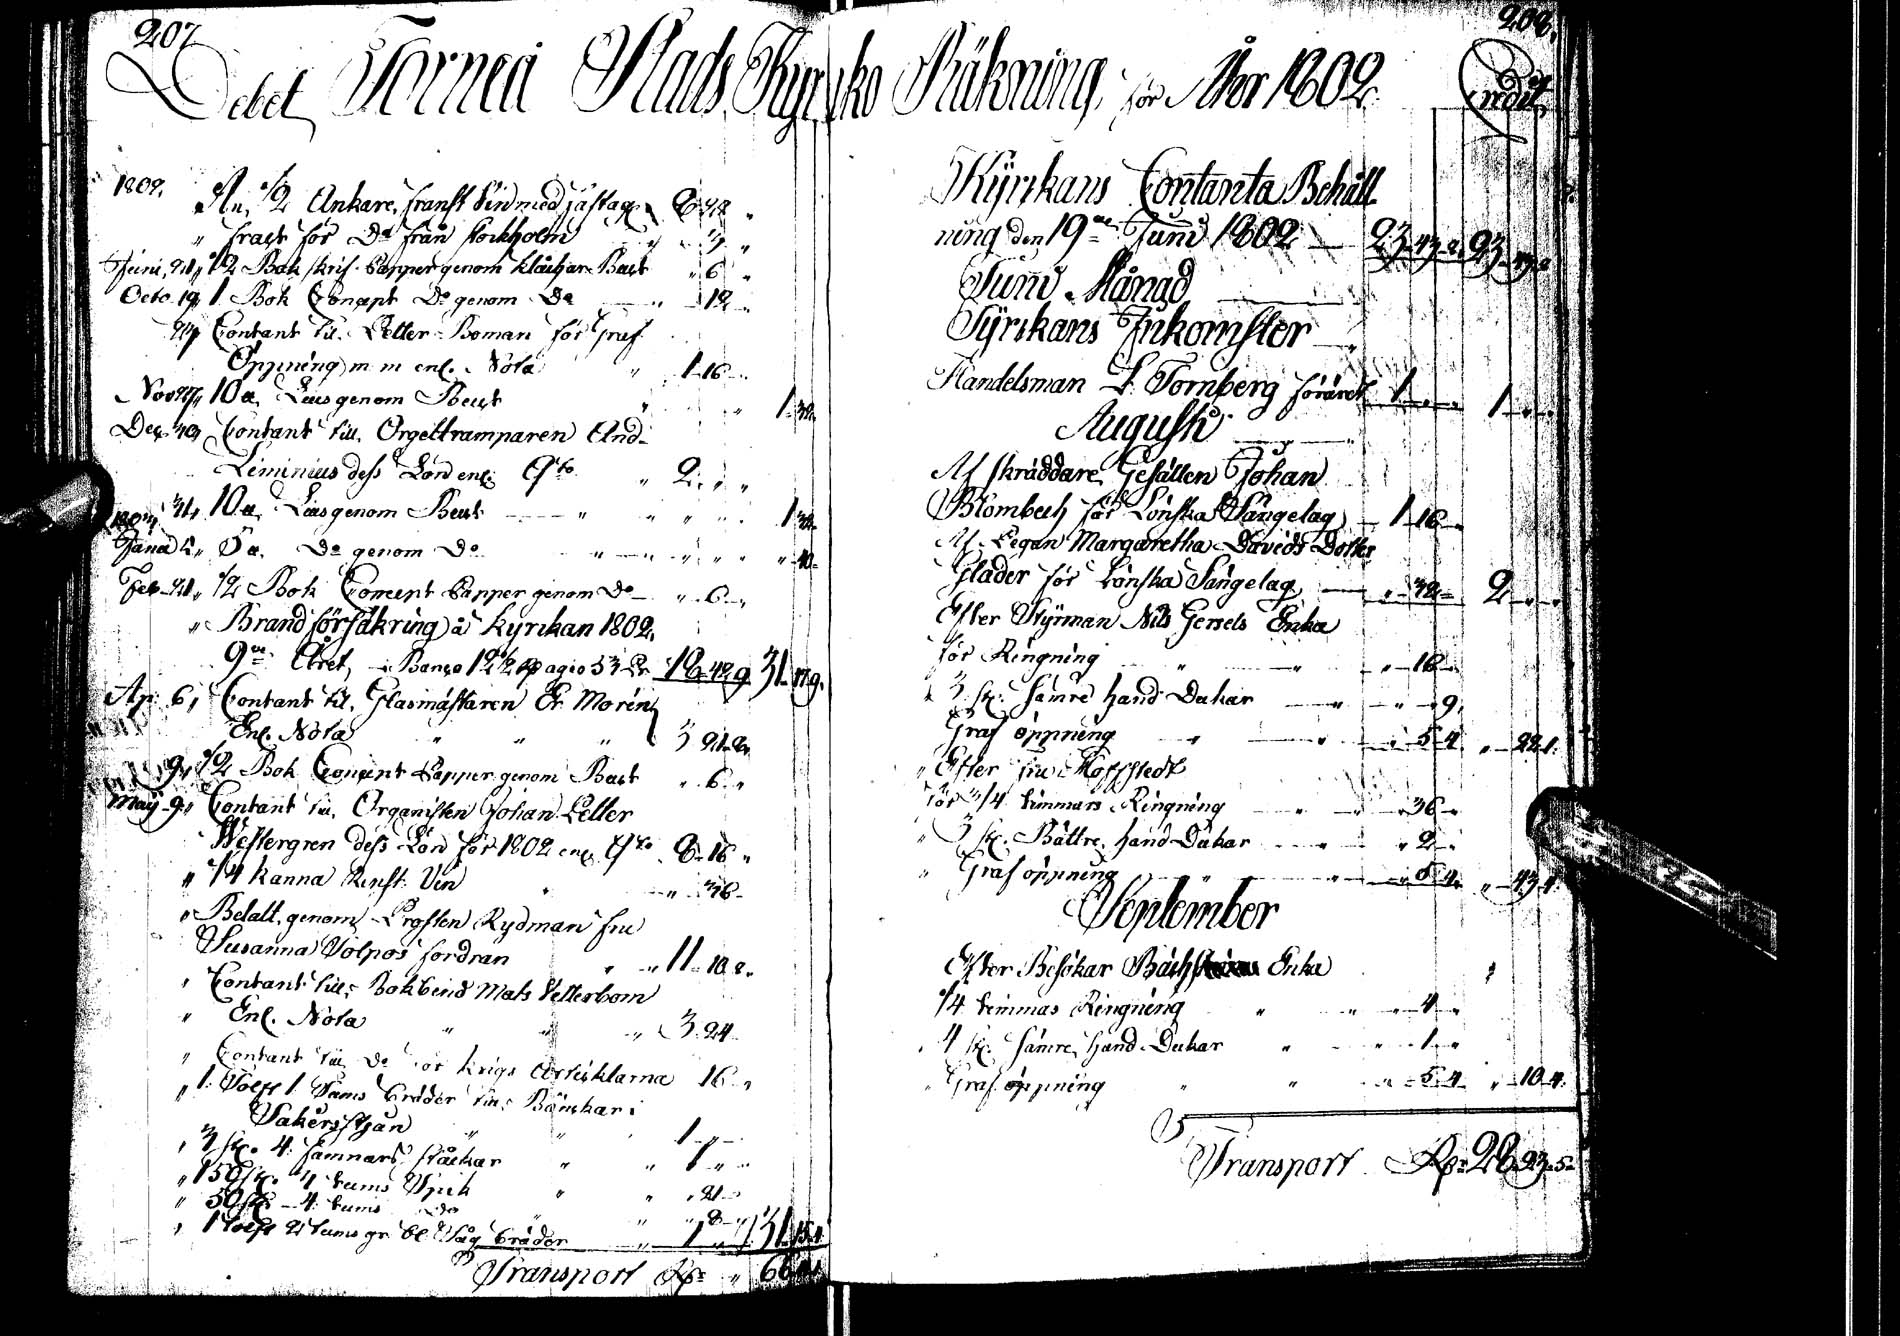 207
Debet Torneå Stads Kyr
1802.
An 1/2 Ankare franst Vin med fastage 8 42 "
" fract för Do från Stockholm
Juni 21 " 1/2 Bok skrif Papper genom klåckar Beckt " 6 "
Octo 19 " 1 Bok Concept Do genom Do 12 "
Contant til Petter Boman för Graf
Öppning m m enl. Nota " 1 16
Nov 27 " 10 Ljus genom Beckt 1 32
Dec Contant till Orgeltramparen And
Liminius dess Lön enl. Qto " 2 " "
31 " 10 Ljus genom Beckt " 1 32
1803
Janu 5 Do genom Do " 40
Feb 21 " 1/2 Bok Concept Papper genom Do " 6 "
" Brand försäkring å Kyrkan 1802
9de Året, Banco 12 1/2 agio 53 18 42 9 31 17 9
Ap: 6 " Contant til Glasmästaren Er Morén
Enl. Nota 3 21 2
9 " 1/2 Bok Concept Papper genom Beckt " 6 "
Maij 9 " Contant till Organisten Johan Petter
Westergren dess Lön för 1802 enl Qto 8 16 "
" 1/4 kanna Vin " 36
" Betalt genom Prosten Rydman fru
Susanna Volpos fordran " 11 10 8
" Contant till Bokbind Mats Vetterbom
" Enl. Nota 3 24
" Contant till Do för Krigs Articklarna 16 "
" 1 Tolft 1 Tums bräder
1 "
" 3 st. 4 famnars ståckar " 1 "
" 150 st. 4 tums Spik " 21
" 50 st 4 tums do " 8
" 1 Tolft 2 tums Såg bräder 1 31 15 4
Transport Rdr " 66
208.
ko Räkning, för Åhr 1802 Credit
Kyrkans Contanta Behåll
ning den 19de Juni 1802 23 43 2 23 43 2
Juni Månad
Kyrkans Inkomster
Handelsman Tornberg föräret 1 " " 1 " "
Augusti
Af Skräddare Gesällen Johan
Blombeck för Lönska Sängelag 1 16 "
Af Pegan Margaretha Davids Dotter
Glader för Lönska Sängelag " 32 2 " "
Efter Styrman Nils Gersels Enka
för Ringning " " 16
" 3 st. Sämre hand Dukar " " 9
Graf öppning " 5 4 " 22 1
" Efter fru Hoffstedt
för 3/4 timmars Ringning " 36 "
" 3 st. Bättre hand Dukar " 2 "
" Graf öppning " 5 4 " 43 4
September
Efter Besökar Enka "
1/4 timmas Ringning " " 4 "
" 4 st. Sämre hand Dukar " " 1 "
" Graf öppning " " 5 4 " 10 4
Transport Rdr 28 23 5